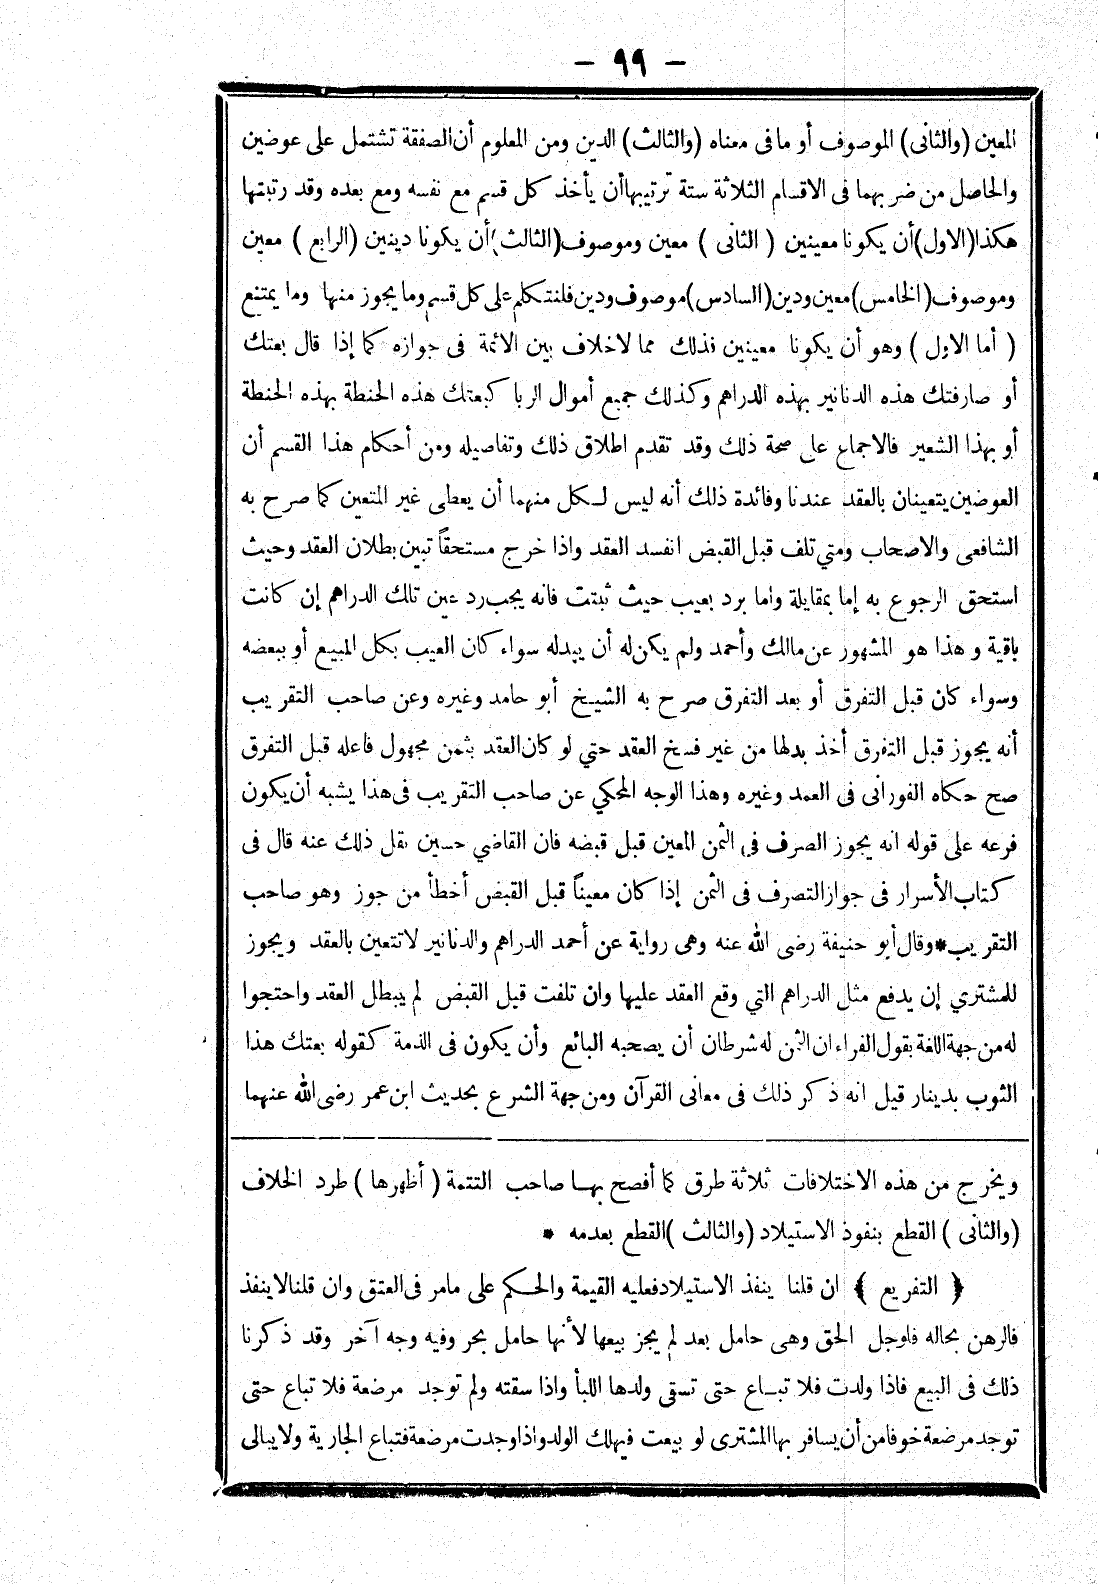 - ٩٩ -
المعين (والثانى) الموصوف أو ما فى معناه (والثالث) الدين ومن المعلوم أن الصفقة تشتمل على عوضين
والحاصل من ضربهما فى الاقسام الثلاثة ستة ترتيبها أن يأخذ كل قسم مع نفسه ومع بعده وقد رتبتها
هكذا (الاول) أن يكونا معينين (الثانى) معين وموصوف (الثالث) أن يكونا دينين (الرابع) معين
وموصوف (الخامس) معين ودين (السادس) موصوف ودين فلنتكلم على كل قسم وما يجوز منها وما يمتنع
(أما الاول) وهو أن يكونا معينين فذلك مما لاخلاف بين الائمة فى جوازه كما إذا قال بعتك
أو صارفتك هذه الدنانير بهذه الدراهم وكذلك جميع أموال الربا كبعتك هذه الحنطة بهذه الحنطة
أو بهذا الشعير فالاجماع على صحة ذلك وقد تقدم اطلاق ذلك وتفاصيله ومن أحكام هذا القسم أن
العوضين يتعينان بالعقد عندنا وفائدة ذلك أنه ليس لكل منهما أن يعطى غير المتعين كما صرح به
الشافعى والاصحاب ومتي تلف قبل القبض انفسد العقد واذا خرج مستحقاً تبين بطلان العقد وحيث
استحق الرجوع به إما بمقايلة واما برد بعيب حيث ثبتت فانه يجب رد عين تلك الدراهم إن كانت
باقية وهذا هو المشهور عن مالك وأحمد ولم يكن له أن يبدله سواء كان العيب بكل المبيع أو ببعضه
وسواء كان قبل التفرق أو بعد التفرق صرح به الشيخ أبو حامد وغيره وعن صاحب التقريب
أنه يجوز قبل التفرق أخذ بدلها من غير فسخ العقد حتي لو كان العقد بثمن مجهول فاعله قبل التفرق
صح حكاه الفورانى فى العمد وغيره وهذا الوجه المحكي عن صاحب التقريب فى هذا يشبه أن يكون
فرعه على قوله انه يجوز الصرف فى الثمن المعين قبل قبضه فان القاضي حسين نقل ذلك عنه قال فى
كتاب الأسرار فى جواز التصرف فى الثمن إذا كان معيناً قبل القبض أخطأ من جوز وهو صاحب
التقريب * وقال أبو حنيفة رضى الله عنه وهى رواية عن أحمد الدراهم والدنانير لا تتعين بالعقد ويجوز
للمشتري إن يدفع مثل الدراهم التي وقع العقد عليها وان تلفت قبل القبض لم يبطل العقد واحتجوا
له من جهة اللغة بقول الفراء ان الثمن له شرطان أن يصحبه البائع وأن يكون فى الذمة كقوله بعتك هذا
الثوب بدينار قيل انه ذكر ذلك فى معانى القرآن ومن جهة الشرع بحديث ابن عمر رضى الله عنهما
ويخرج من هذه الاختلافات ثلاثة طرق كما أفصح بها صاحب التتمة (أظهرها) طرد الخلاف
(والثانى) القطع بنفوذ الاستيلاد (والثالث) القطع بعدمه *
﴿ التفريع ﴾ ان قلنا ينفذ الاستيلاد فعليه القيمة والحكم على مامر فى العتق وان قلنا لا ينفذ
فالرهن بحاله فلوحل الحق وهى حامل بعد لم يجز بيعها لأنها حامل بحر وفيه وجه آخر وقد ذكرنا
ذلك فى البيع فاذا ولدت فلا تباع حتى تسقى ولدها اللبأ واذا سقته ولم توجد مرضعة فلا تباع حتى
توجد مرضعة خوفا من أن يسافر بها المشترى لو بيعت فيهلك الولد واذا وجدت مرضعة فتباع الجارية ولا يبالى